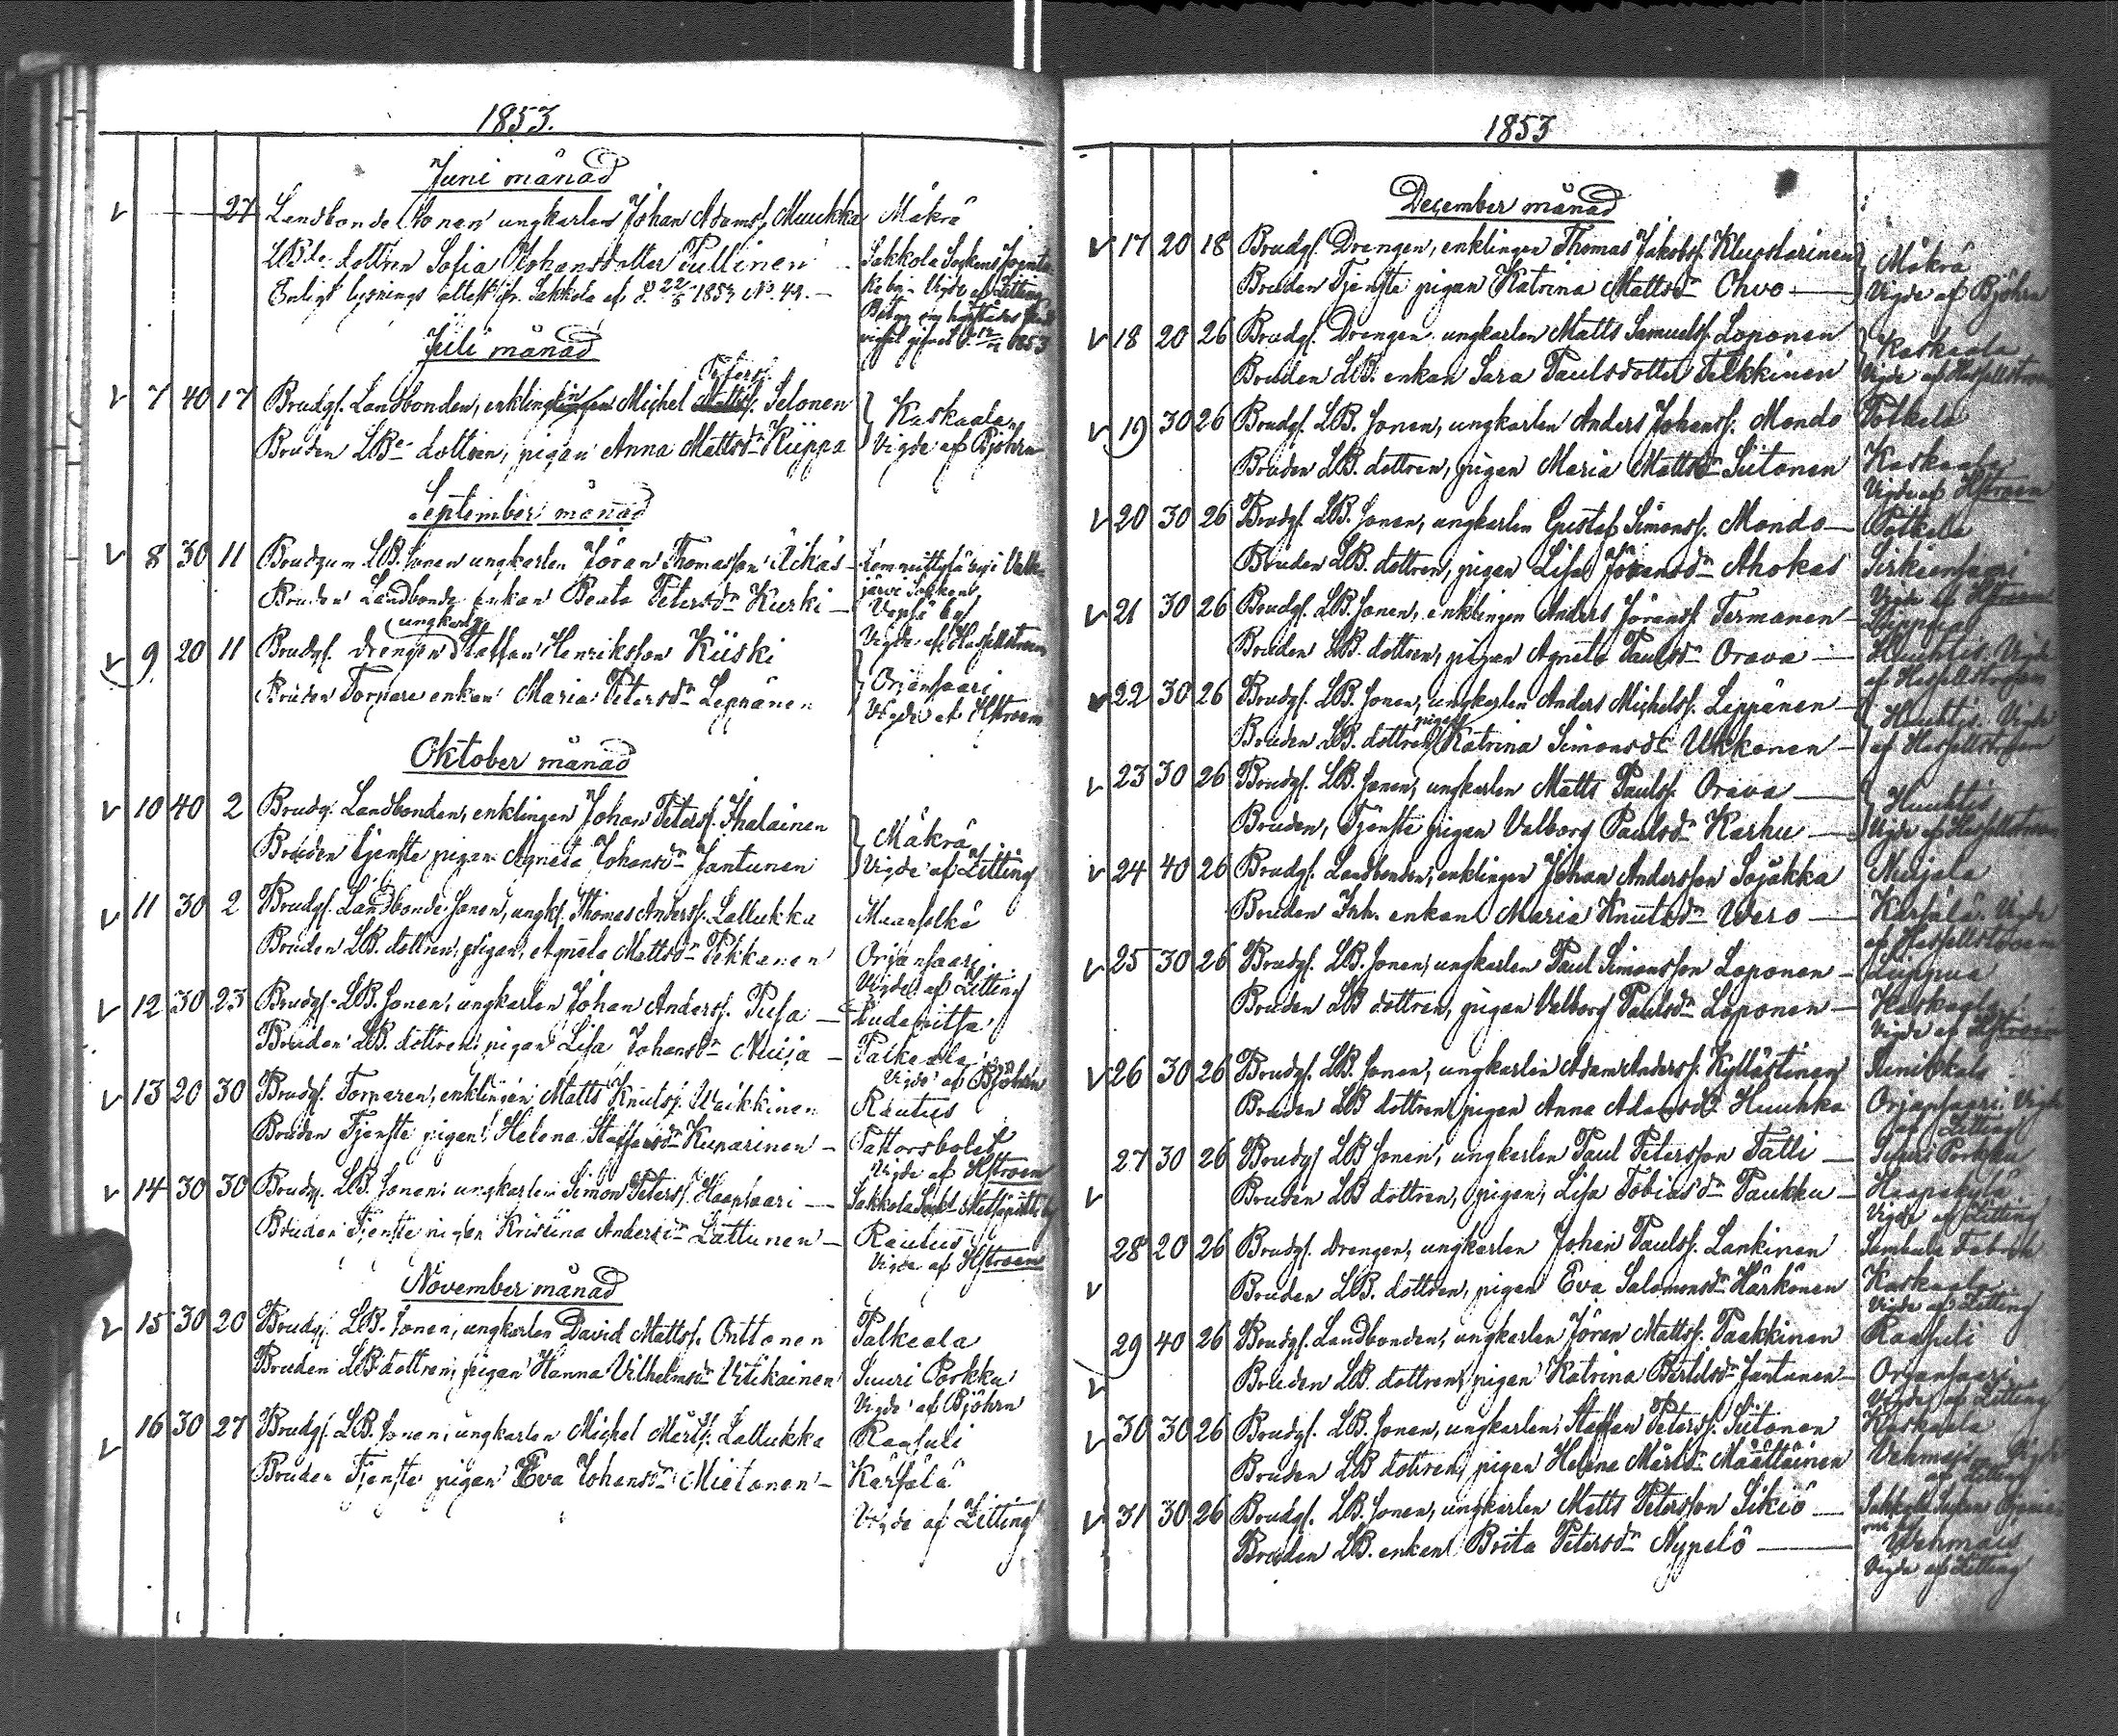 1853.
Juni månad
27 Landbonde sonen ungkarlen Johan Adamss. Muukka Mäkrä
LBde dottren Sofia Johansdotter Pullinen Sakkola Sockens
Enligt lysnings attest fr. Sakkola af d. 22/5 1853 No 49. Vigde af Litting
1853
Juli månad
Peterss.
7 40 17 Brudg. Landbonden, enklingen Michel Selonen Kaskaala
Bruden LBde dottren, pigan Anna Mattsdr Kiippa Vigde af Björhn
September månad
8 30 11 Brudgum LB. sonen ungkarlen Jöran Thomasson Äikäs
järvi Socken
Bruden Landbonde enkan Beata Petersdr Kurki by
ungkarlen Vigde af Hassellstroem
9 20 11 Brudg. drengen Staffan Henriksson Kiiski
Orjansaari
Bruden Torpare enkan Maria Petersdr Leppänen Vigde af Hstroem
Oktober månad
10 40 2 Brudg. Landbonden, enklingen Johan Peterss. Ihalainen Mäkrä
Bruden tjenste pigan Agneta Johansdr Jantunen Vigde af Litting
11 30 2 Brudg. Landbonde sonen, ungk. Thomas Anderss. Lallukka Maanselkä
Bruden LB. dottren, pigan, Agneta Mattsdr Pekkanen Orjansaari
Vigde af Litting
12 30 23 Brudg. LB. sonen, ungkarlen Johan Anderss. Pusa
Bruden LB. dottren pigan Lisa Johansdr Nuija Palkeala
Vigde af Björhn
13 20 30 Brudg. Torparen, enklingen Matts Knutss. Waikkinen Rautus
Bruden Tjenste pigan Helena Staffansdr Kuparinen
Vigde af Hstroem
14 30 30 Brudg. LB. sonen, ungkarlen Simon Peterss. Haapsaari Sakkola
Bruden Tjenste pigan Kristina Andersdr Lättunen Rautus
Vigde af Hstroem
November månad
15 30 20 Brudg. LB. sonen, ungkarlen David Mattss. Onttonen Palkeala
Bruden LB dottren, pigan Hanna Vilhelmsdr Vitikainen Suuri Porkku
Vigde af Björhn
16 30 27 Brudg. LB. sonen, ungkarlen Michel Märtss. Lallukka Raasuli
Bruden Tjenste pigan Eva Johansdr Mietonen Kärsälä
Vigde af Litting
1853
December månad
17 20 18 Brudg. Drengen, enklingen Thomas Jakobss. Kluuskarinen Mäkrä
Bruden Tjenste pigan Katrina Mattsdr Ohvo Vigde af Björhn
18 20 26 Brudg. Drengen ungkarlen Matts Samuelss. Loponen Kaskaala
Bruden LB. enkan Sara Paulsdotter Pekkinen Vigde af Hassellstroem
19 30 26 Brudg. LB. sonen, ungkarlen Anders Johanss. Mondo Potkela
Bruden LB. dottren, pigan Maria Mattsdr Siitonen Kaskaala
Vigde af Hstroem
20 30 26 Brudg. LB. sonen, ungkarlen Gustaf Simonss. Mondo Potkela
Bruden LB. dottren, pigan Lisa Jöransdr Ahokas Sirkiensaari
Vigde af Hstroem
21 30 26 Brudg. LB. sonen, enklingen Anders Jöranss. Termanen Leinpua
Bruden LB. dottren, pigan Agneta Paulsdr Orava Huuhtis. Vigde
af Hassellstroem
22 30 26 Brudg. LB. sonen, ungkarlen Anders Michelss. Leppänen Huuhtis. Vigde
pigan
Bruden LB. dottren Katrina Simonsdr Ukkonen af Hassellstroem
23 30 26 Brudg. LB. sonen, ungkarlen Matts Paulss. Orava Huuhtis
Bruden, Tjenste pigan Valborg Paulsdr Karhu Vigde af Hassellstroem
24 40 26 Brudg. Landbonden, enklingen Johan Andersson Sojakka Nuijala
Bruden Inh. enkan Maria Knutsdr Wero Kärsälä. Vigde
af Hassellstroem
25 30 26 Brudg. LB. sonen, ungkarlen Paul Simonsson Loponen Leinpua
Bruden LB dottren, pigan Valborg Paulsdr Loponen Kaskaala
Vigde af Hstroem
26 30 26 Brudg. LB. sonen, ungkarlen Adam Anderss. Kyllästinen
Bruden LB dottren pigan Anna Adamsdr Huuhka Orjansaari. Vigde
af Litting
27 30 26 Brudg. LB sonen, ungkarlen Paul Petersson Tatti Suuri Porkku
Bruden LB dottren, pigan, Lisa Tobiasdr Paukku Haapakylä
Vigde af Litting
28 20 26 Brudg. drengen, ungkarlen Johan Paulss. Lankinen Sumbula Fabrik
Bruden LB. dottren, pigan Eva Salomonsdr Härkönen Kaskaala
Vigde af Litting
29 40 26 Brudg. Landbonden, ungkarlen Jöran Mattss. Paakkinen Raasuli
Bruden LB. dottren, pigan Katrina Bertilsdr Jantunen Orjansaari
Vigde af Litting
30 30 26 Brudg. LB. sonen, ungkarlen, Staffan Peterss. Siitonen Kaskaala
Bruden LB dottren, pigan Helena Märtsdr Määttäinen Vehmais Vigde
af Litting
31 30 26 Brudg. LB. sonen, ungkarlen Matts Petersson Sikiö Sakkola Socken
Bruden LB. enkan Brita Petersdr Nypelö Wehmais
Vigde af Litting